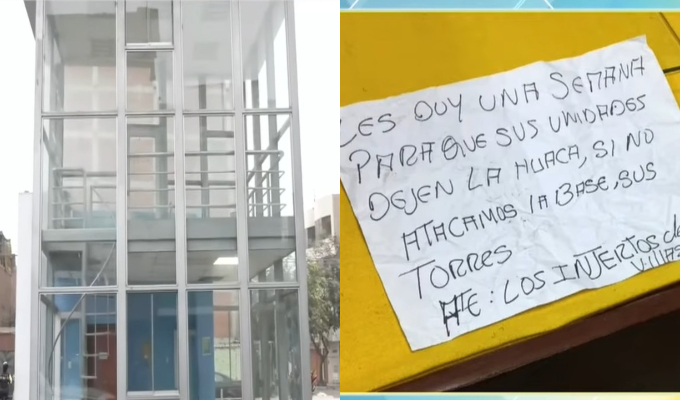 LES DOY UNA SEMANA
PARA QUE SUS UNIDADES
DEJEN LA HUACA, SI NO
ATACAMOS LA BASE, SUS
TORRES
ATTE: LOS INJERTOS de
VILLAS